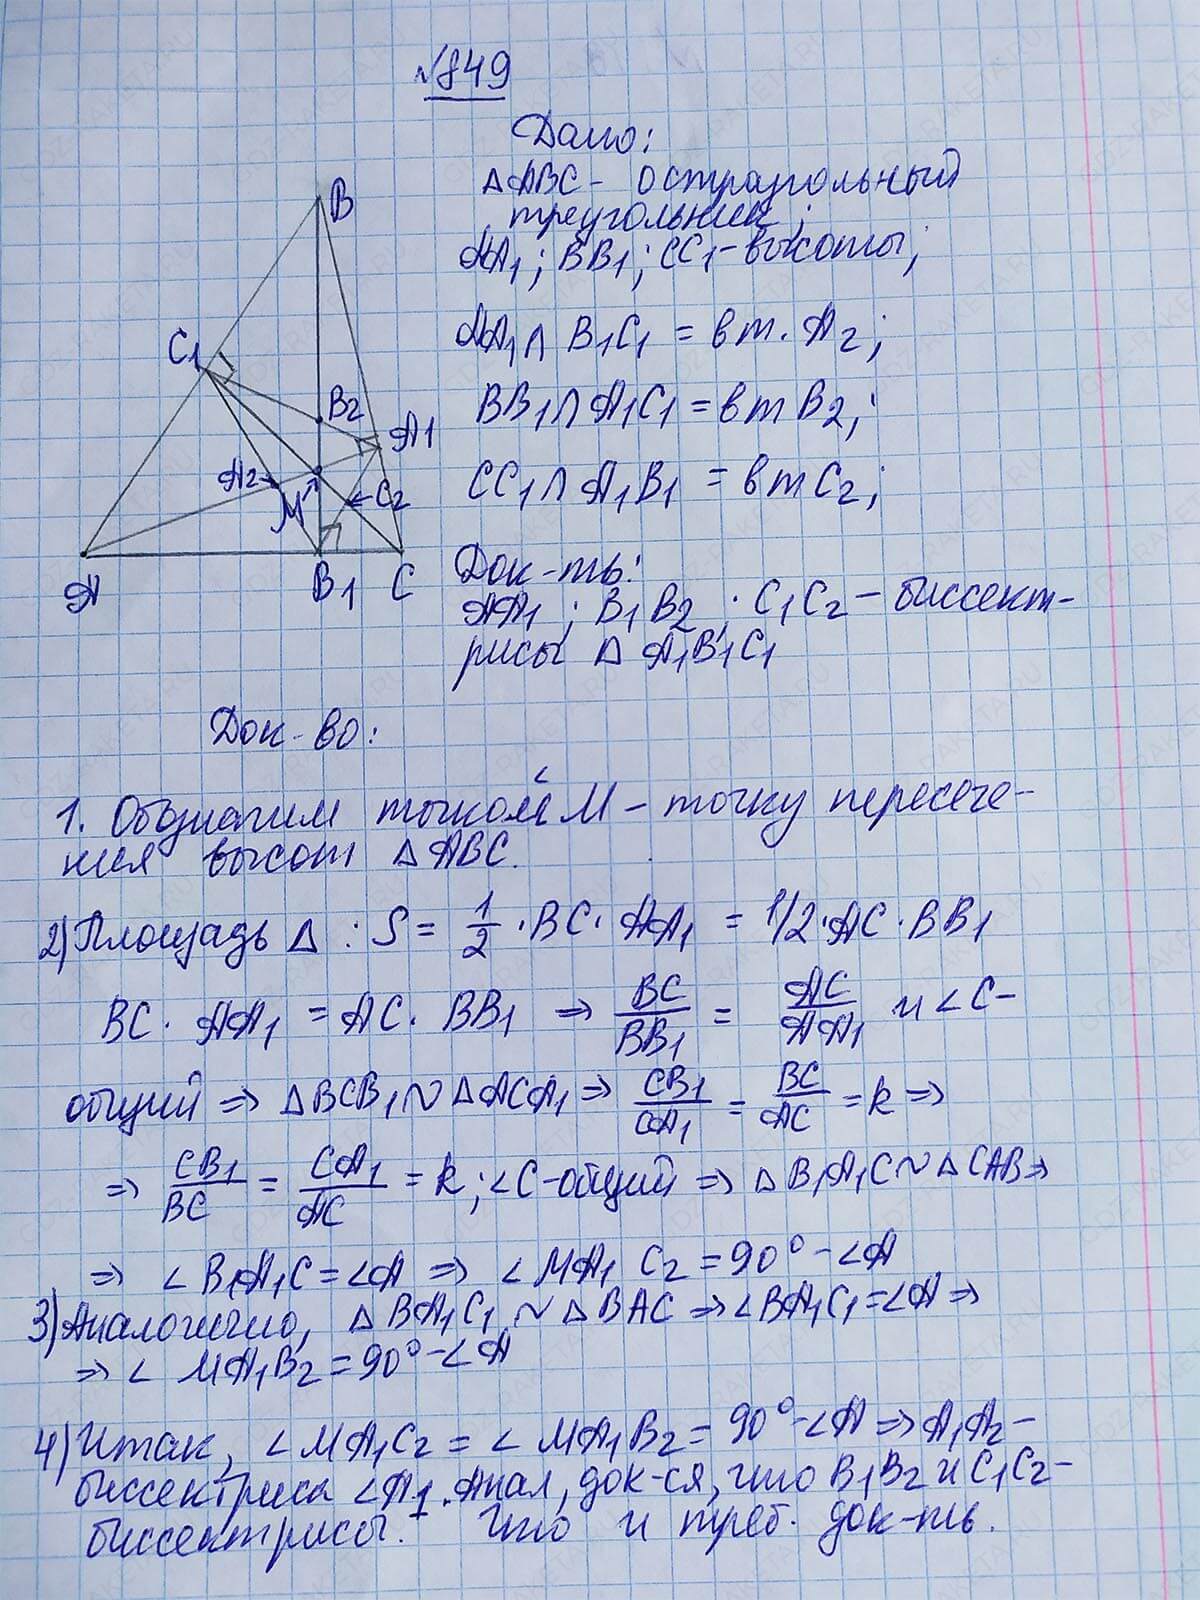 №849
Дано:
△ABC - остроугольный
треугольник;
AA1; BB1; CC1 - высоты;
AA1 ∩ B1C1 = в т. A2;
BB1 ∩ A1C1 = в т B2;
CC1 ∩ A1B1 = в т C2;
Док-ть:
AA1; B1B2; C1C2 - биссект-
рисы △ A1B1C1
B
C1
B2
A1
A2
M
C2
A
B1
C
Док-во:
1. Обозначим точкой M - точку пересече-
ния высот △ABC.
2) Площадь △ : S = 1/2 · BC · AA1 = 1/2 · AC · BB1
BC · AA1 = AC · BB1 ⇒ BC/BB1 = AC/AA1 и ∠C -
общий ⇒ △BCB1 ~ △ACA1 ⇒ CB1/CA1 = BC/AC = k ⇒
⇒ CB1/BC = CA1/AC = k; ∠C - общий ⇒ △B1A1C ~ △CAB ⇒
⇒ ∠B1A1C = ∠A ⇒ ∠MA1C2 = 90° - ∠A
3) Аналогично, △BA1C1 ~ △BAC ⇒ ∠BA1C1 = ∠A ⇒
⇒ ∠MA1B2 = 90° - ∠A
4) Итак, ∠MA1C2 = ∠MA1B2 = 90° - ∠A ⇒ A1A2 -
биссектриса ∠A1. Анал, док-ся, что B1B2 и C1C2 -
биссектрисы. Что и треб. док-ть.